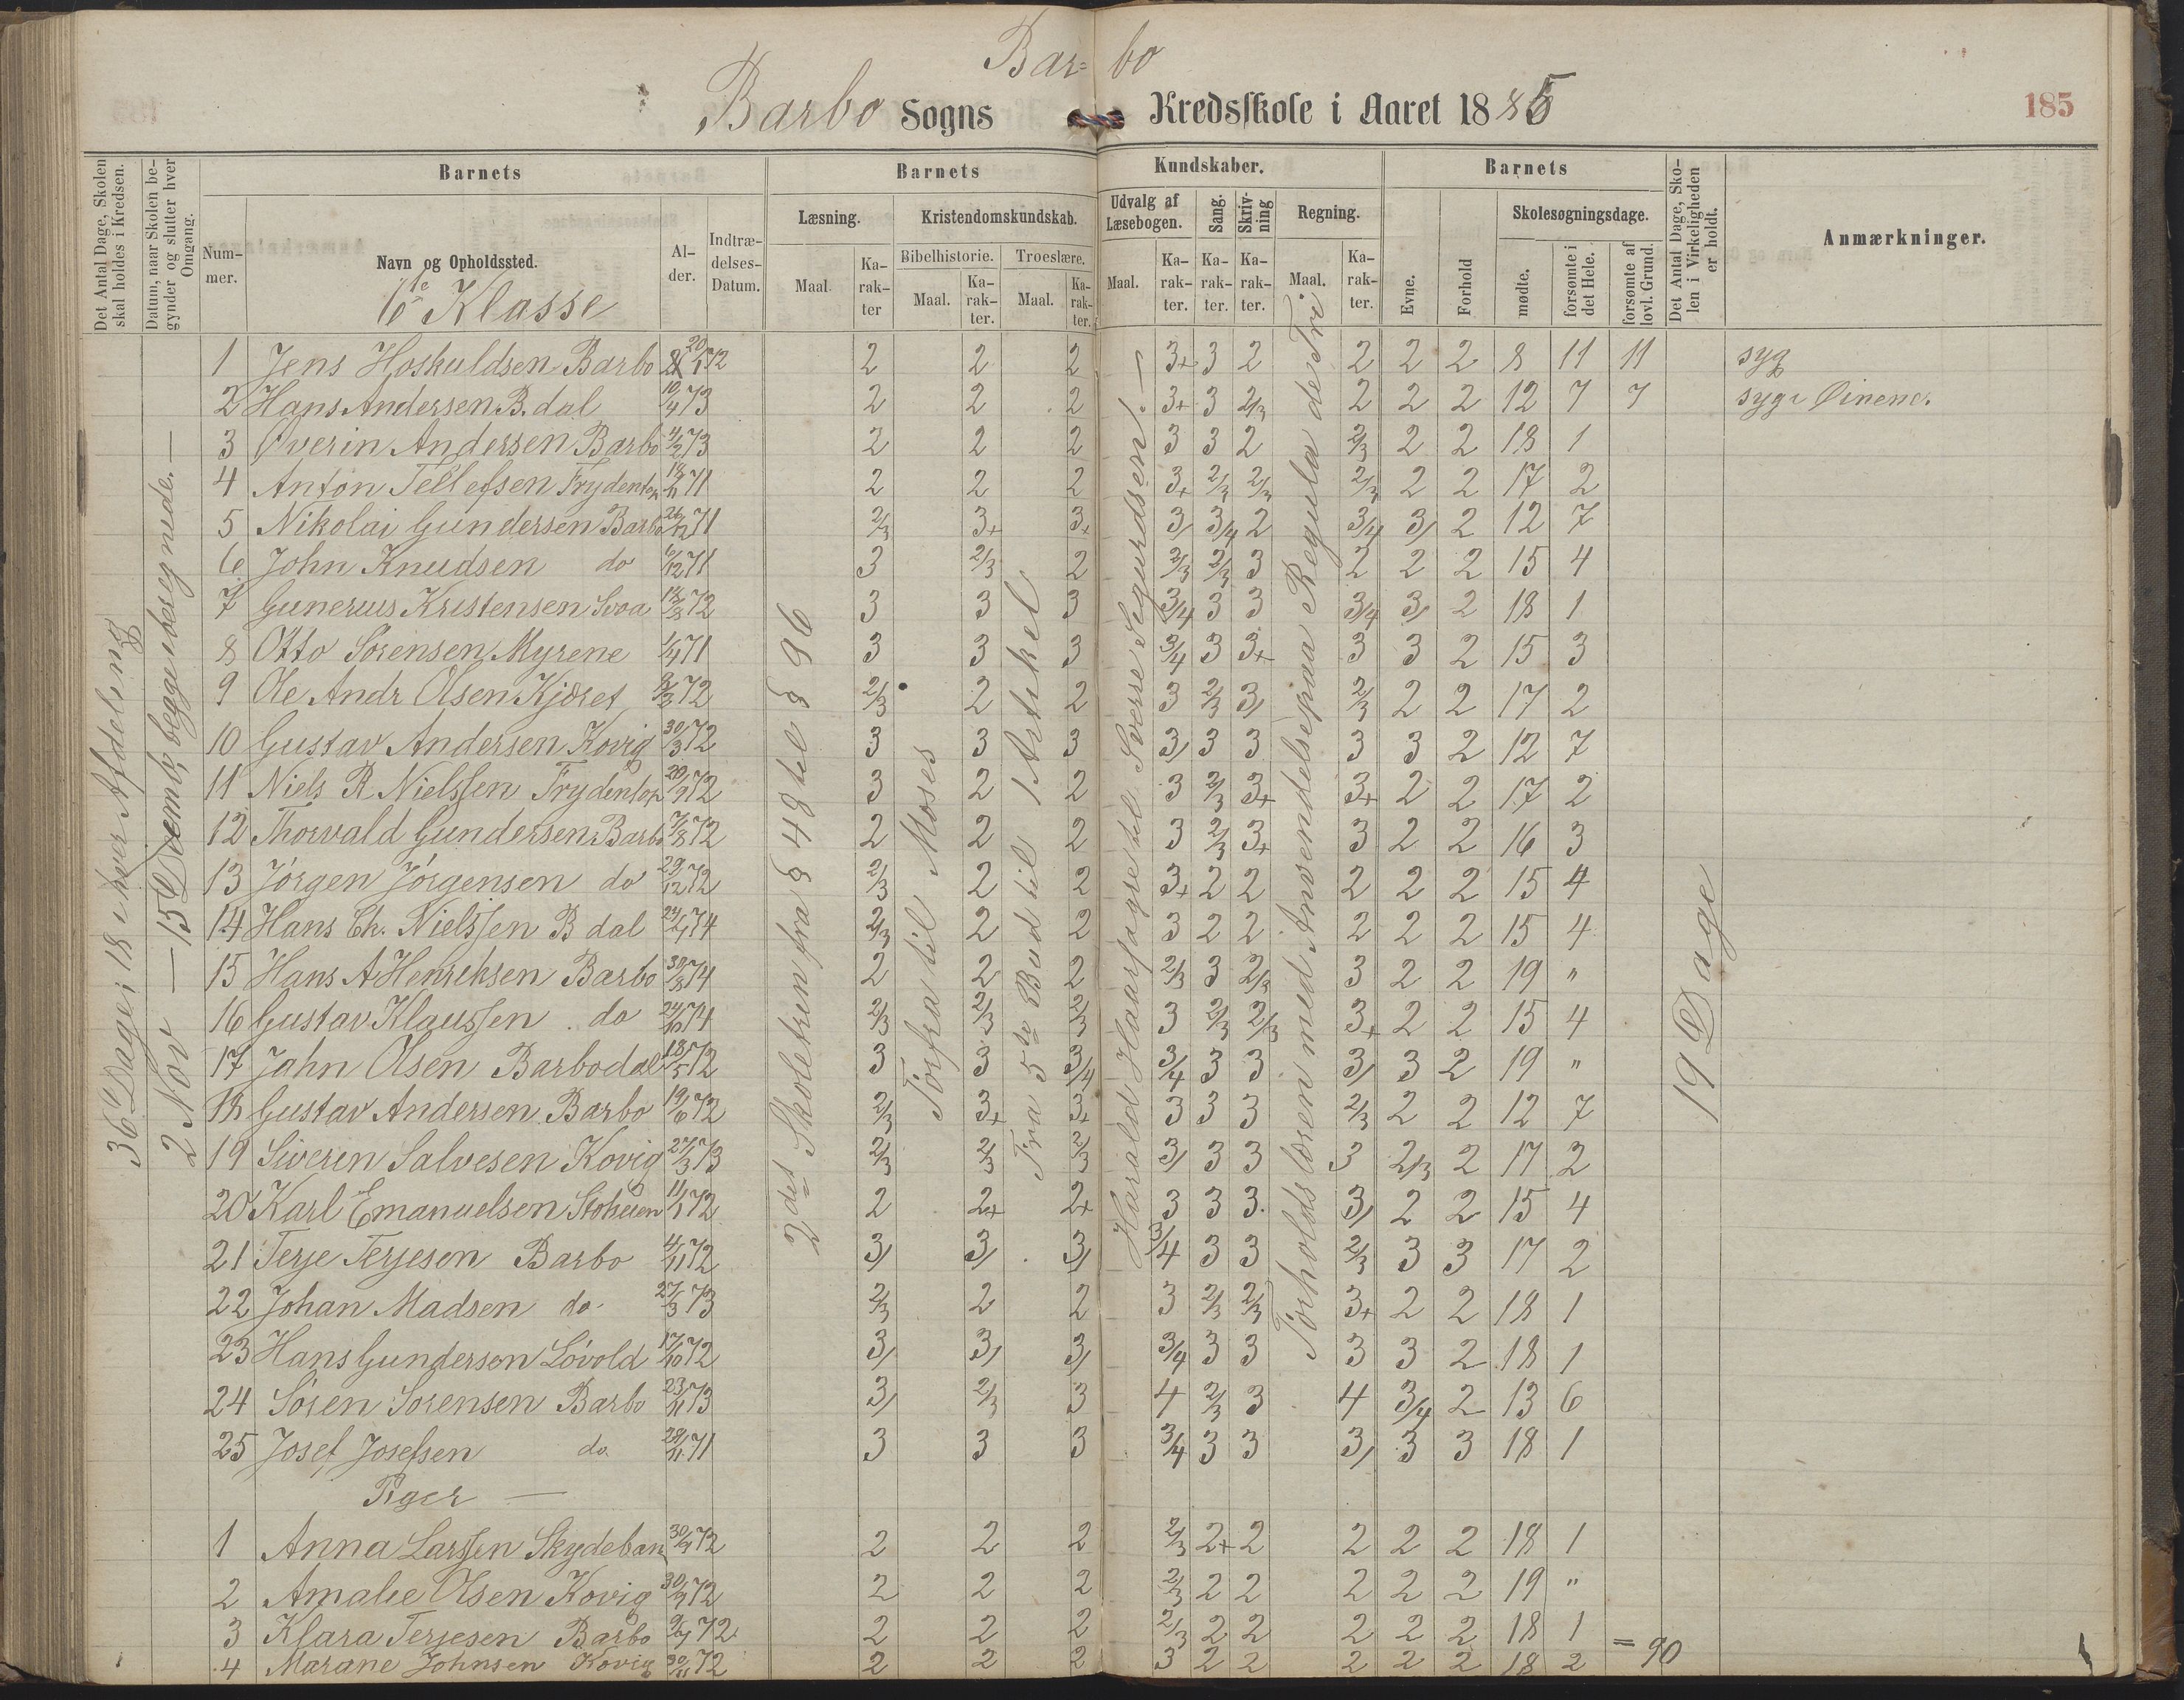 Bar= bo
Barbo Sogns Kredsskole i Aaret 1885
185
Det Antal Dage, Skolen skal holdes i Kredsen.
Datum, naar Skolen begynder og slutter hver Omgang.
Barnets
Barnets
Kundskaber.
Barnets
Det Antal Dage, Skolen i Virkeligheden er holdt.
Anmærkninger.
Nummer.
Navn og Opholdssted.
Alder.
Indtrædelses-Datum.
Læsning.
Kristendomskundskab.
Udvalg af Læsebogen.
Sang.
Skrivning
Regning.
Evne.
Forhold
Skolesøgningsdage.
Bibelhistorie.
Troeslære.
Maal.
Karakter
Maal.
Karakter.
Maal.
Karakter.
Maal.
Karakter.
Karakter.
Karakter.
Maal.
Karakter.
mødte.
forsømte i det Hele.
forsømte af lovl. Grund.
6te Klasse
36 Dage; 18 i hver Afdeling
2 Nov — 15 Decemb, begge iberegnede. —
2det Skoletrin fra § 48 til § 96
Forfra til Moses
Fra 5te Bud til 1 Artikel
Harald Haarfagre til Sverre Sigurdsen. —
Forholdslæren med Anvendelse paa Regula de Tri
19 Dage
1 Jens Hoskuldsen Barbo 20/1 72 2 2 2 3+ 3 2 2 2 2 8 11 11 syg
2 Hans Andersen B.dal 10/4 73 2 2 2 3+ 3 2/3 2 2 2 12 7 7 syg i Øinene.
3 Øverin Andersen Barbo 4/2 73 2 2 2 3 3 2 2/3 2 2 18 1
4 Anton Tellefsen Frydentop 18/11 71 2 2 2 3+ 2/3 2/3 2/3 2 2 17 2
5 Nikolai Gundersen Barbo 26/12 71 2/3 3+ 3+ 3/ 3/4 2 3/4 3/ 2 12 7
6 John Knudsen do 6/12 71 3 2/3 2 2/3 2/3 3 2 2 2 15 4
7 Gunerius Kristensen Svoa 12/3 72 3 3 3 3/4 3 3 3/4 3/ 2 18 1
8 Otto Sørensen Myrene 1/4 71 3 3 3 3/4 3 3+ 3 3 2 15 3
9 Ole Andr Olsen Kjøret 9/3 72 2/3 2 2 3 2/3 3/ 2/3 2 2 17 2
10 Gustav Andersen Kovig 30/3 72 3 3 3 3/ 3 3 3 3 2 12 7
11 Niels R Nielssen Frydentop 20/9 72 3 2 2 3 2/3 3+ 3+ 2 2 17 2
12 Thorvald Gundersen Barbo 7/8 72 2 2 2 3 2/3 3+ 3 2 2 16 3
13 Jørgen Jørgensen do 29/12 72 2/3 2 2 3+ 2 2 2 2 2 15 4
14 Hans Ch. Nielssen B dal 24/1 74 2/3 2 2 3 2 2 2 2 2 15 4
15 Hans A Henriksen Barbo 30/8 74 2 2 2 2/3 3 2/3 3 2 2 19 "
16 Gustav Klaussen do 24/10 74 2/3 2/3 2/3 3 2/3 2/3 3+ 2 2 15 4
17 Jahn Olsen Barbodal 18/5 72 3 3 3/4 3/4 3 3 3/ 3 2 19 "
18 Gustav Andersen Barbo 19/6 72 2/3 3+ 3+ 3 3 3 2/3 2 2 12 7
19 Siveren Salvesen Kovig 27/3 73 2/3 2/3 2/3 3/ 3 3 3 2/3 2 17 2
20 Karl Emanuelsen Stoheien 11/1 72 2 2+ 2+ 3 3 3 3/ 2 2 15 4
21 Terje Terjesen Barbo 4/11 72 3/ 3/ 3/ 3/4 3 3 2/3 3 3 17 2
22 Johan Madsen do 27/3 73 2/3 2 2 3 2/3 2/3 3+ 2 2 18 1
23 Hans Gundersen Løvold 17/10 72 3/ 3/ 3/ 3/4 3 3 3 3 2 18 1
24 Søren Sørensen Barbo 23/11 73 3/ 2/3 3 4 2/3 3 4 3/4 2 13 6
25 Josef Josefsen do 28/11 71 3 3 3 3/4 3 3 3/ 3 3 18 1
Piger —
1 Anna Larssen Skydeban 30/9 72 2 2 2 2/3 2+ 2 2 2 2 18 1
2 Amalie Olsen Kovig 30/9 72 2 2 2 2/3 2 2 2 2 2 19 "
3 Klara Terjesen Barbo 9/7 72 2 2 2 2/3 2 2 2 2 2 18 1
4 Marane Johnsen Kovig 30/11 72 2 2 2 3 2 2 2 2 2 18 2 = 90